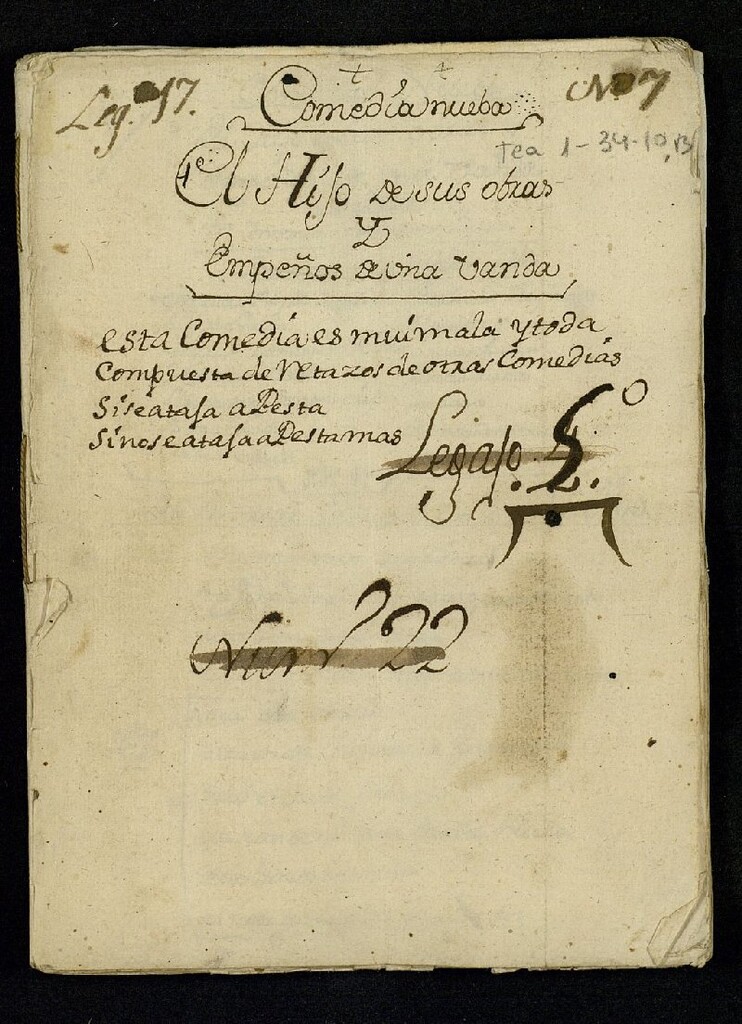 Leg.º 17.
Comedia nueba
Nº 7
tea 1-34-10, B
El Hijo de sus obras
Y
Empeños de vna vanda
esta Comedia es mui mala y toda
Compuesta de Retazos de otras Comedias
Si se ataja apesta
Si no se ataja apesta mas
Legajo
Num.º 22